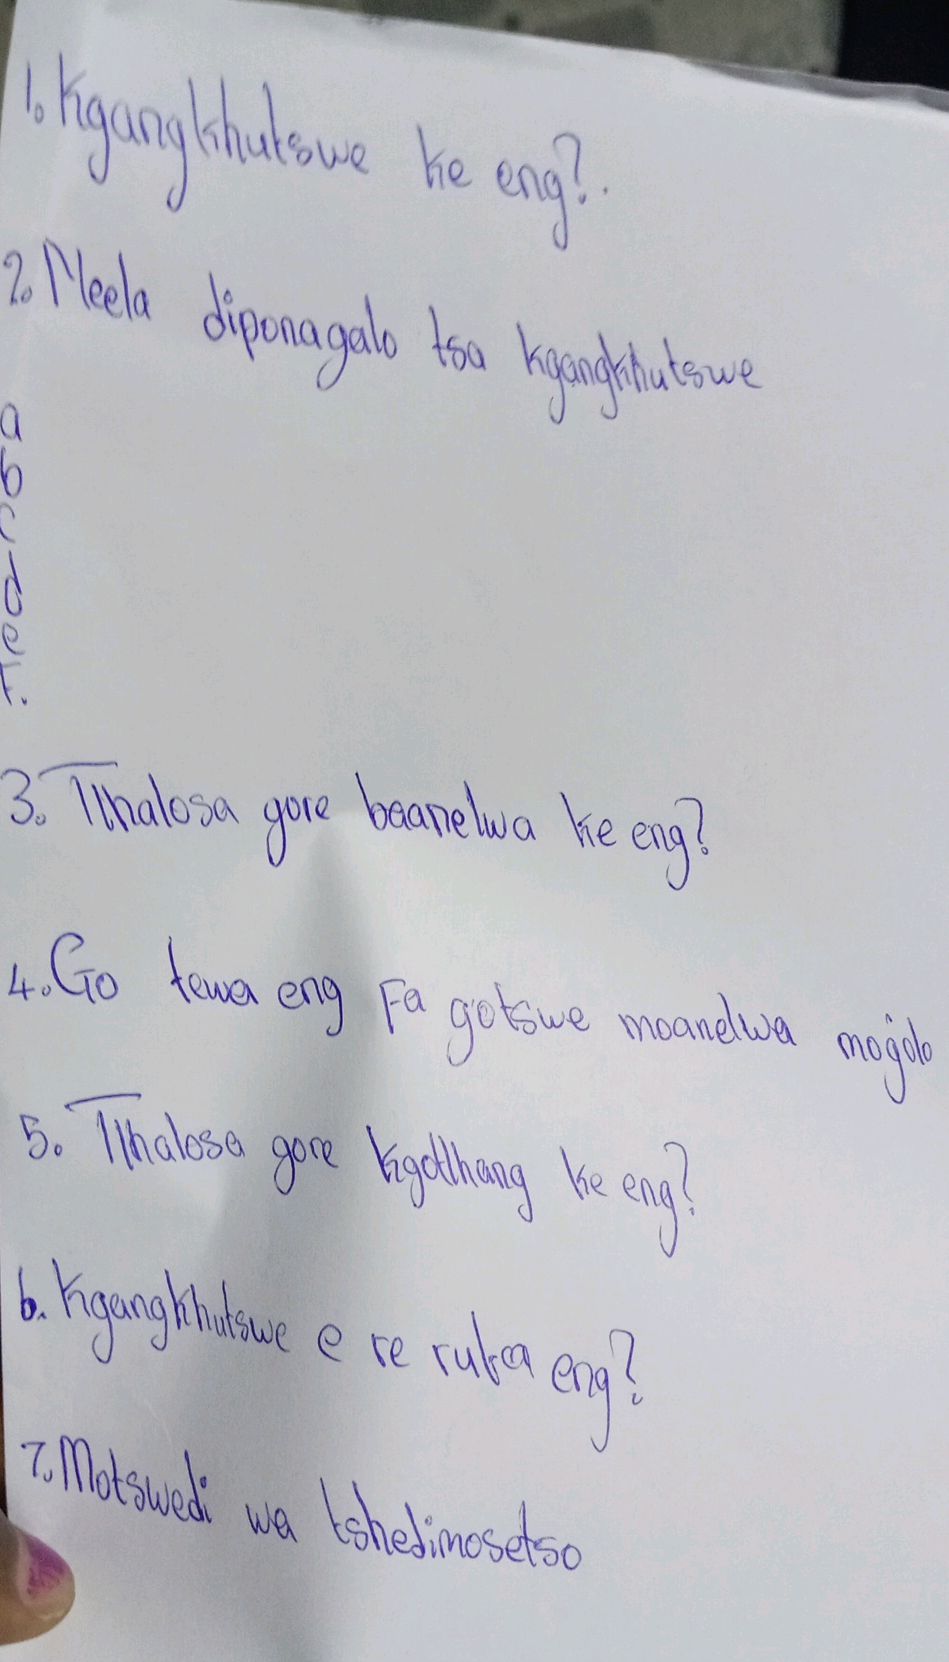 1. Kgangkhutswe ke eng?.
2. Neela diponagalo tsa kgangkhutswe
a
b
c
d
e
f.
3. Tlhalosa gore baanelwa ke eng?
4. Go tewa eng Fa gotswe moanelwa mogolo
5. Tlhalosa gore kgotlhang ke eng?
6. Kgangkhutswe e re ruta eng?
7. Motswedi wa tshedimosetso